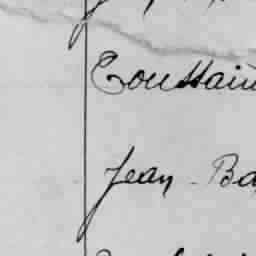 Toussain
Jean-Ba